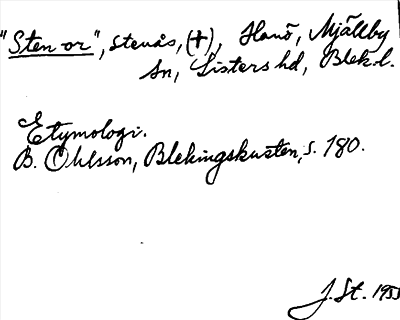 "Sten or", stenås, (+), Hanö, Mjällby
sn, Listers hd, Blek.l.
Etymologi.
B. Ohlsson, Blekingskusten, s. 180.
J. St. 1955